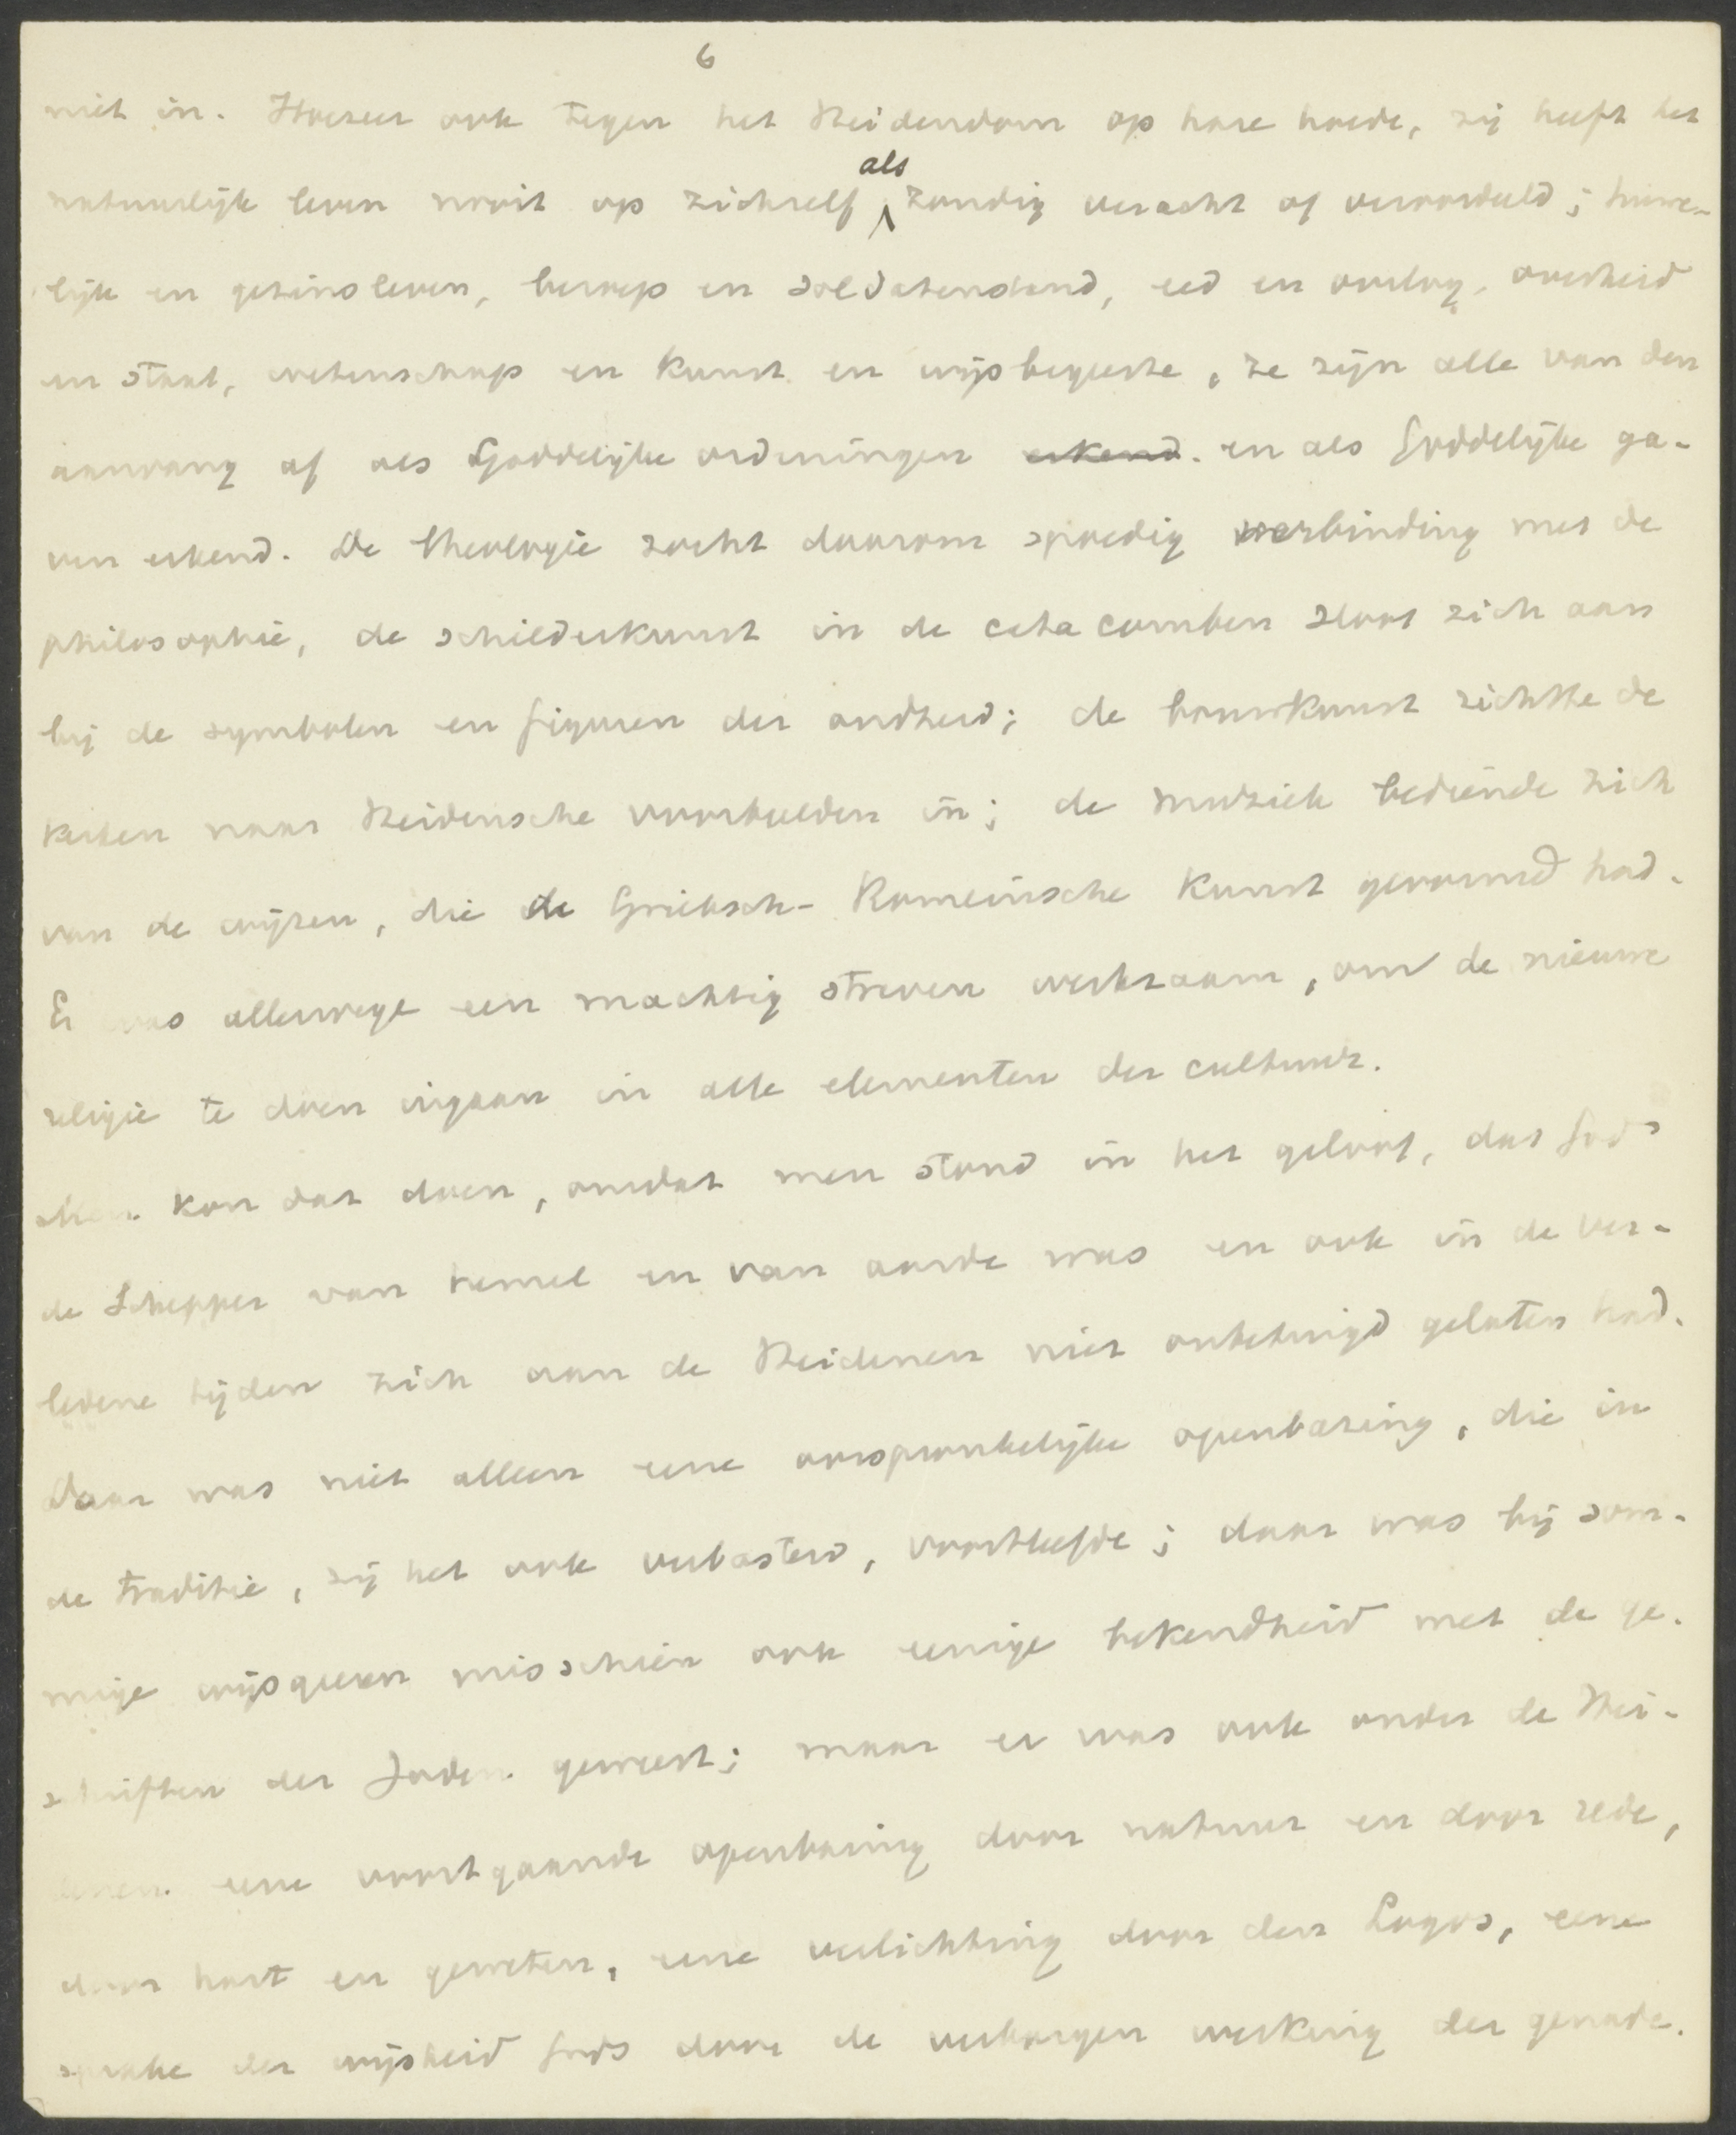 6
niet in. Hoezeer ook tegen het Heidendom op hare hoede, zij heeft het
als
natuurlijk leven nooit op zichzelf zondig veracht of veroordeeld; huwe-
lijk en gezinsleven, beroep en soldatenstand, eed en oorlog, overheid
en staat, wetenschap en kunst en wijsbegeerte, ze zijn alle van den
aanvang af als Goddelijke ordeningen erkend. en als Goddelijke ga-
ven erkend. De theologie zocht daarom spoedig verbinding met de
philosophie, de schilderkunst in de catacomben sloot zich aan
bij de symbolen en figuren der oudheid; de bouwkunst richtte de
kerken naar Heidensche voorbeelden in; de muziek bediende zich
van de wijzen, die de Grieksch-Romeinsche kunst gevormd had.
Er was allerwege een machtig streven werkzaam, om de nieuwe
religie te doen ingaan in alle elementen der cultuur.
Men kon dat doen, omdat men stond in het geloof, dat God
de Schepper van hemel en van aarde was en ook in de ver-
ledene tijden zich aan de Heidenen niet onbetuigd gelaten had.
Daar was niet alleen eene oorspronkelijke openbaring, die in
de traditie, zij het ook verbasterd, voortleefde; daar was bij som-
mige wijsgeeren misschien ook eenige bekendheid met de ge-
schriften der Joden geweest; maar er was ook onder de Hei-
denen eene voortgaande openbaring door natuur en door rede,
door hart en geweten, eene verlichting door den Logos, eene
sprake der wijsheid Gods door de verborgen werking der genade.